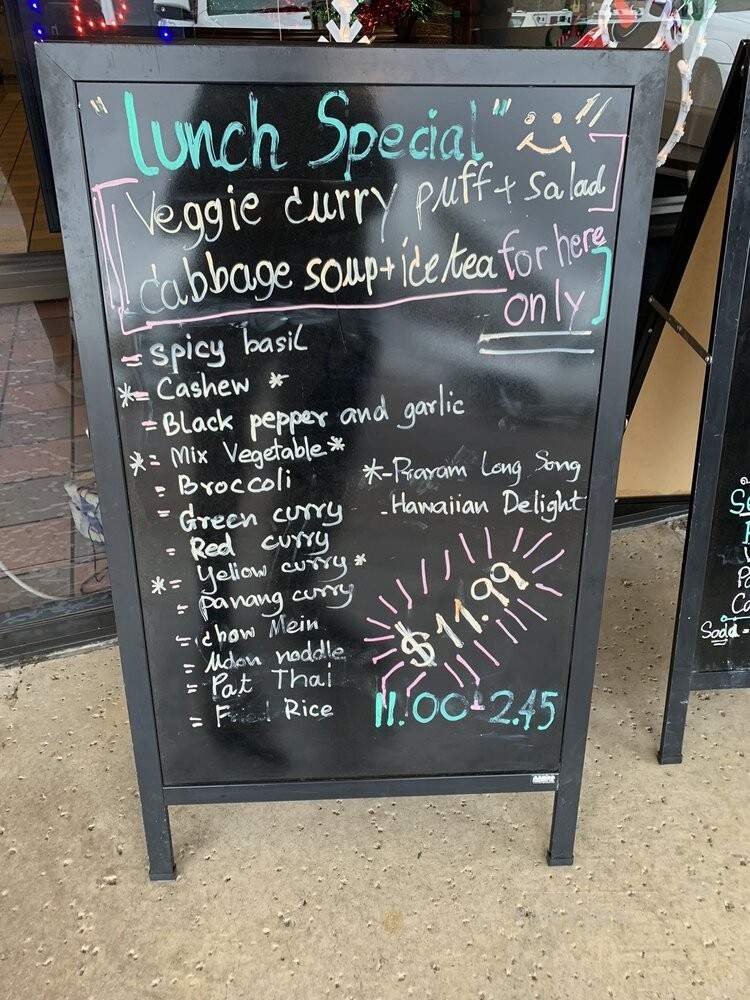 "Lunch Special"
Veggie curry puff + Salad
Cabbage soup + ice tea for here
only
= spicy basil
*= Cashew *
= Black pepper and garlic
*= Mix Vegetable *
= Broccoli
= Green curry
= Red curry
*= Yellow curry *
= panang curry
= chow Mein
= Udon noddle
= Pat Thai
= Fried Rice
*- Praram Long Song
- Hawaiian Delight
$11.99
11.00-2.45